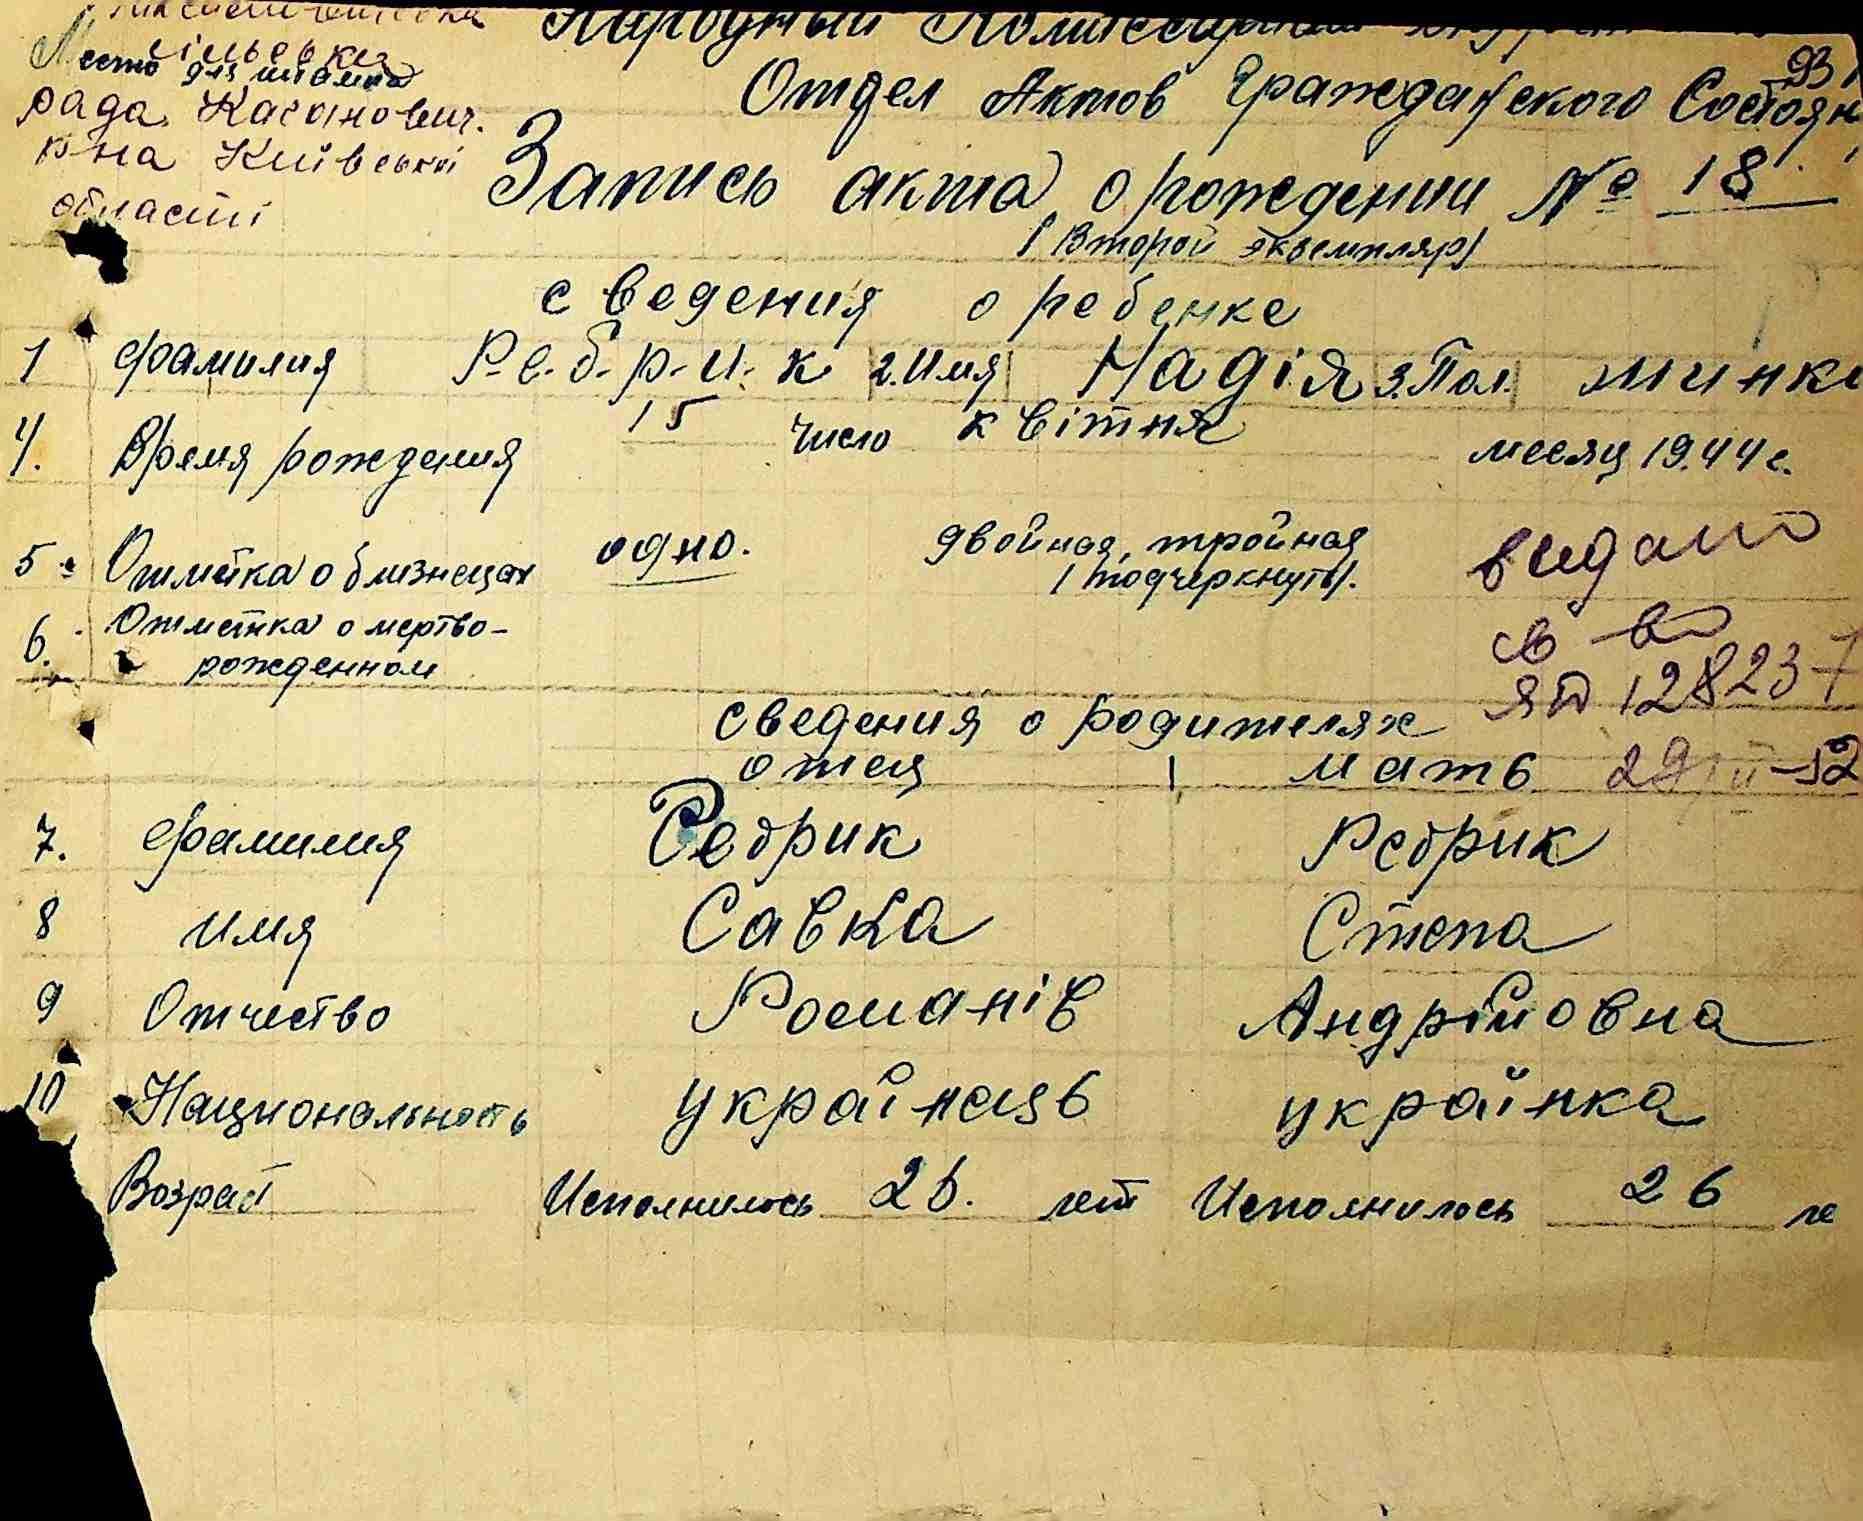 Народный Комиссариат
Место для штампа
сільська
рада Каганович.
р-на Київської
області
93
Отдел Актов Гражданского Состоян
Запись акта о рождении № 18
(Второй экземпляр)
сведения о ребенке
1 Фамилия Р-е-б-р-и-к 2. Имя Надія 3. Пол. жінк
4. Время рождения 15 число квітня месяц 1944 г.
5. Отметка о близнецах одно. двойная, тройная
(подчеркнуть).
6. Отметка о мертво-
рожденном
видано
св во
ЯП 128237
сведения о родителях
отец мать
7. Фамилия Ребрик Ребрик
8 Имя Савка Степа
9 Отчество Романів Андрійовна
10 Национальность українець українка
Возраст Исполнилось 26. лет Исполнилось 26 ле